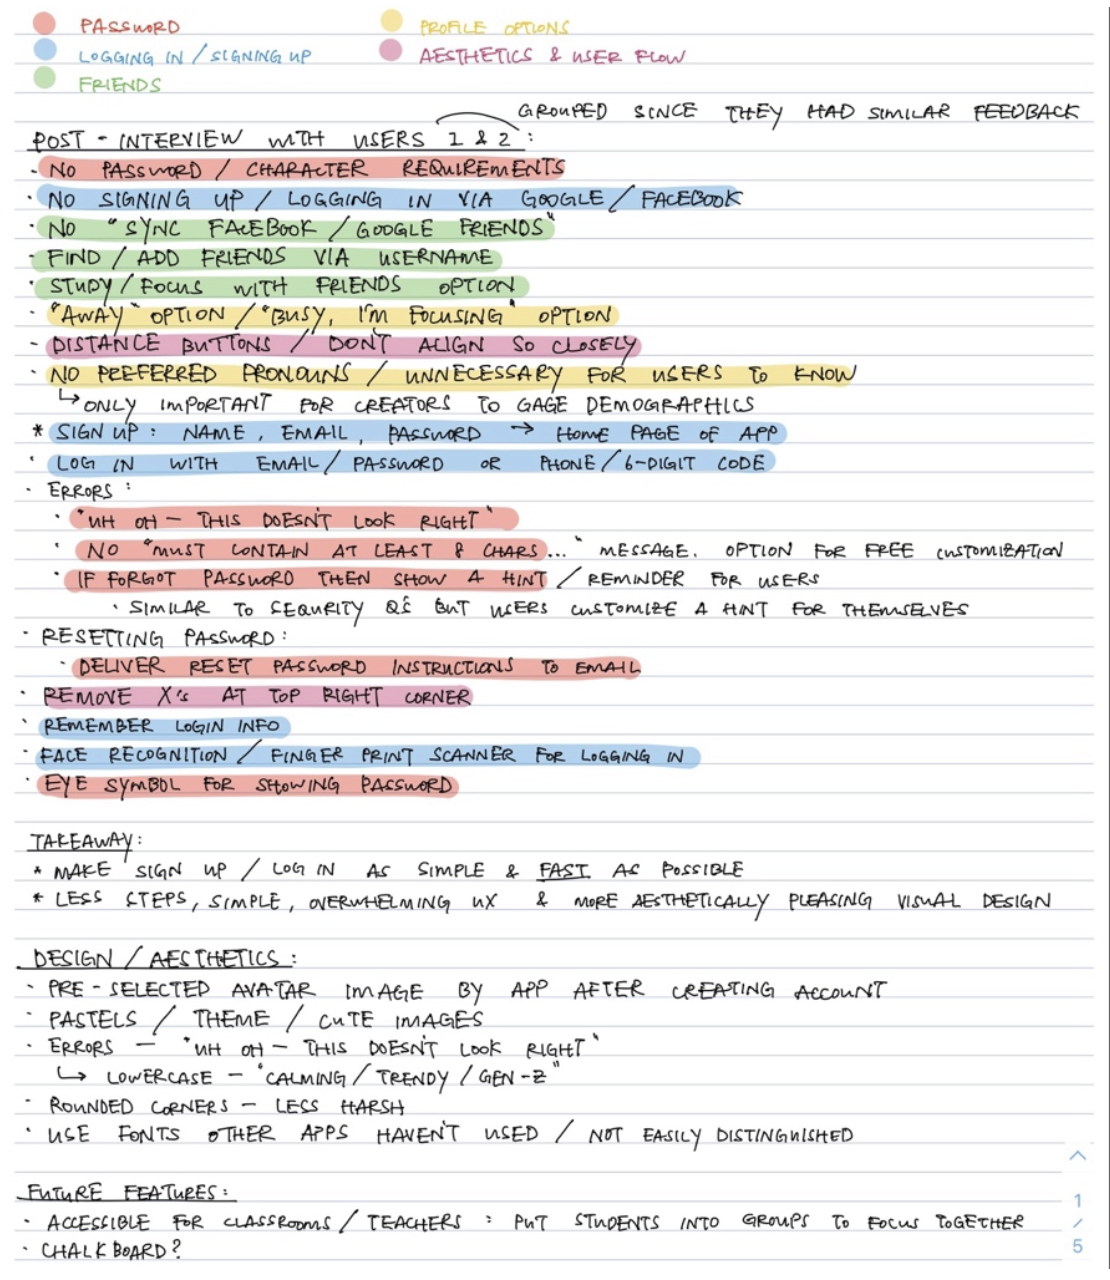 PASSWORD
PROFILE OPTIONS
LOGGING IN / SIGNING UP
AESTHETICS & USER FLOW
FRIENDS
GROUPED SINCE THEY HAD SIMILAR FEEDBACK
POST - INTERVIEW WITH USERS 1 & 2 :
- NO PASSWORD / CHARACTER REQUIREMENTS
· NO SIGNING UP / LOGGING IN VIA GOOGLE / FACEBOOK
· NO "SYNC FACEBOOK / GOOGLE FRIENDS"
- FIND / ADD FRIENDS VIA USERNAME
· STUDY / FOCUS WITH FRIENDS OPTION
· "AWAY" OPTION / "BUSY, I'M FOCUSING" OPTION
- DISTANCE BUTTONS / DON'T ALIGN SO CLOSELY
· NO PREFERRED PRONOUNS / UNNECESSARY FOR USERS TO KNOW
↳ ONLY IMPORTANT FOR CREATORS TO GAGE DEMOGRAPHICS
* SIGN UP : NAME , EMAIL , PASSWORD → HOME PAGE OF APP
· LOG IN WITH EMAIL / PASSWORD OR PHONE / 6-DIGIT CODE
· ERRORS :
· "UH OH — THIS DOESN'T LOOK RIGHT"
· NO "MUST CONTAIN AT LEAST 8 CHARS..." MESSAGE. OPTION FOR FREE CUSTOMIZATION
· IF FORGOT PASSWORD THEN SHOW A HINT / REMINDER FOR USERS
· SIMILAR TO SEQURITY QS BUT USERS CUSTOMIZE A HINT FOR THEMSELVES
· RESETTING PASSWORD :
· DELIVER RESET PASSWORD INSTRUCTIONS TO EMAIL
· REMOVE X's AT TOP RIGHT CORNER
· REMEMBER LOGIN INFO
· FACE RECOGNITION / FINGER PRINT SCANNER FOR LOGGING IN
· EYE SYMBOL FOR SHOWING PASSWORD
TAKEAWAY :
* MAKE SIGN UP / LOG IN AS SIMPLE & FAST AS POSSIBLE
* LESS STEPS, SIMPLE, OVERWHELMING UX & MORE AESTHETICALLY PLEASING VISUAL DESIGN
DESIGN / AESTHETICS :
· PRE - SELECTED AVATAR IMAGE BY APP AFTER CREATING ACCOUNT
· PASTELS / THEME / CUTE IMAGES
· ERRORS — "UH OH — THIS DOESN'T LOOK RIGHT"
↳ LOWERCASE — "CALMING / TRENDY / GEN-Z"
· ROUNDED CORNERS — LESS HARSH
· USE FONTS OTHER APPS HAVEN'T USED / NOT EASILY DISTINGUISHED
FUTURE FEATURES :
· ACCESSIBLE FOR CLASSROOMS / TEACHERS : PUT STUDENTS INTO GROUPS TO FOCUS TOGETHER
· CHALKBOARD?
1
/
5